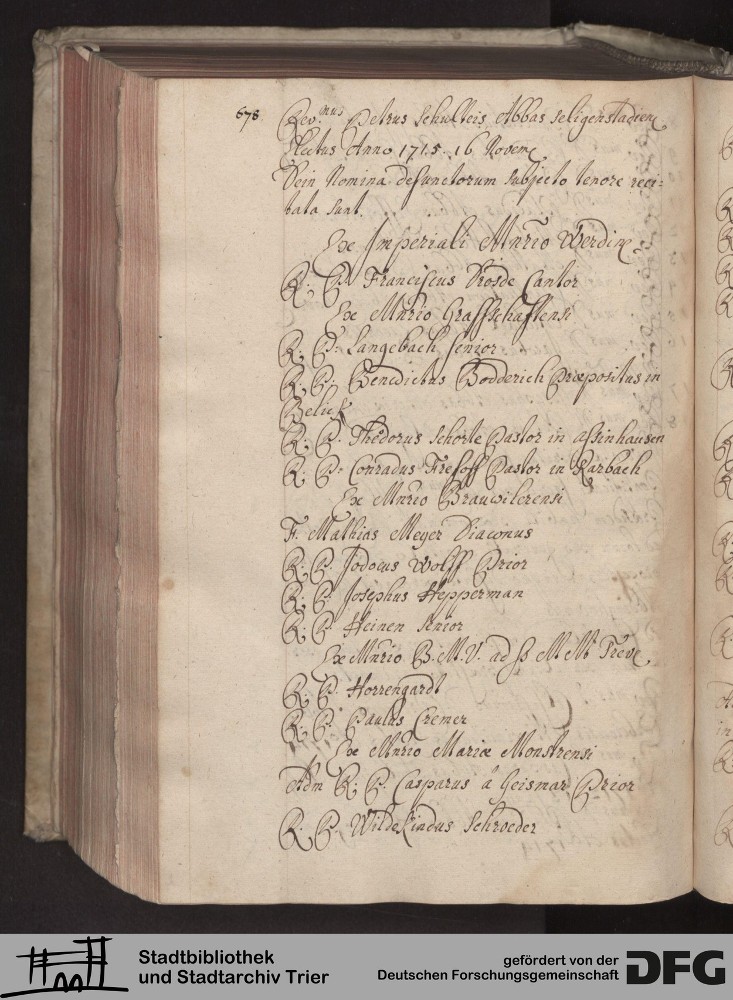 678
Rev.mus Petrus Schulteis Abbas Seligenstadien
Electus Anno 1715. 16 Novem
Dein Nomina defunctorum subjecto tenore reci-
tata sunt.
Ex Imperiali Mnrio Werdin
R. P. Franciscus Drosde Cantor
Ex Mnrio Graffschaftensi
R. P. Langebach Senior
R. P. Benedictus Bodderich Præpositus in
Belick
R. P. Thedorus Schorte Pastor in Assinhausen
R. P. Conradus Freseff Pastor in Karbach
Ex Mnrio Brauwilerensi
F. Mathias Meyer Diaconus
R. P. Jodocus Wolff Prior
R. P. Josephus Hepperman
R. P. Heinen Senior
Ex Mnrio B. M. V. ad SS MM Treve
R. P. Horrengardt
R. P. Paulus Cremer
Ex Mnrio Mariæ Monstrensi
Adm R. P. Casparus a Geismar Prior
R. P. Wildekindus Schroeder
Stadtbibliothek
und Stadtarchiv Trier
gefördert von der
Deutschen Forschungsgemeinschaft
DFG